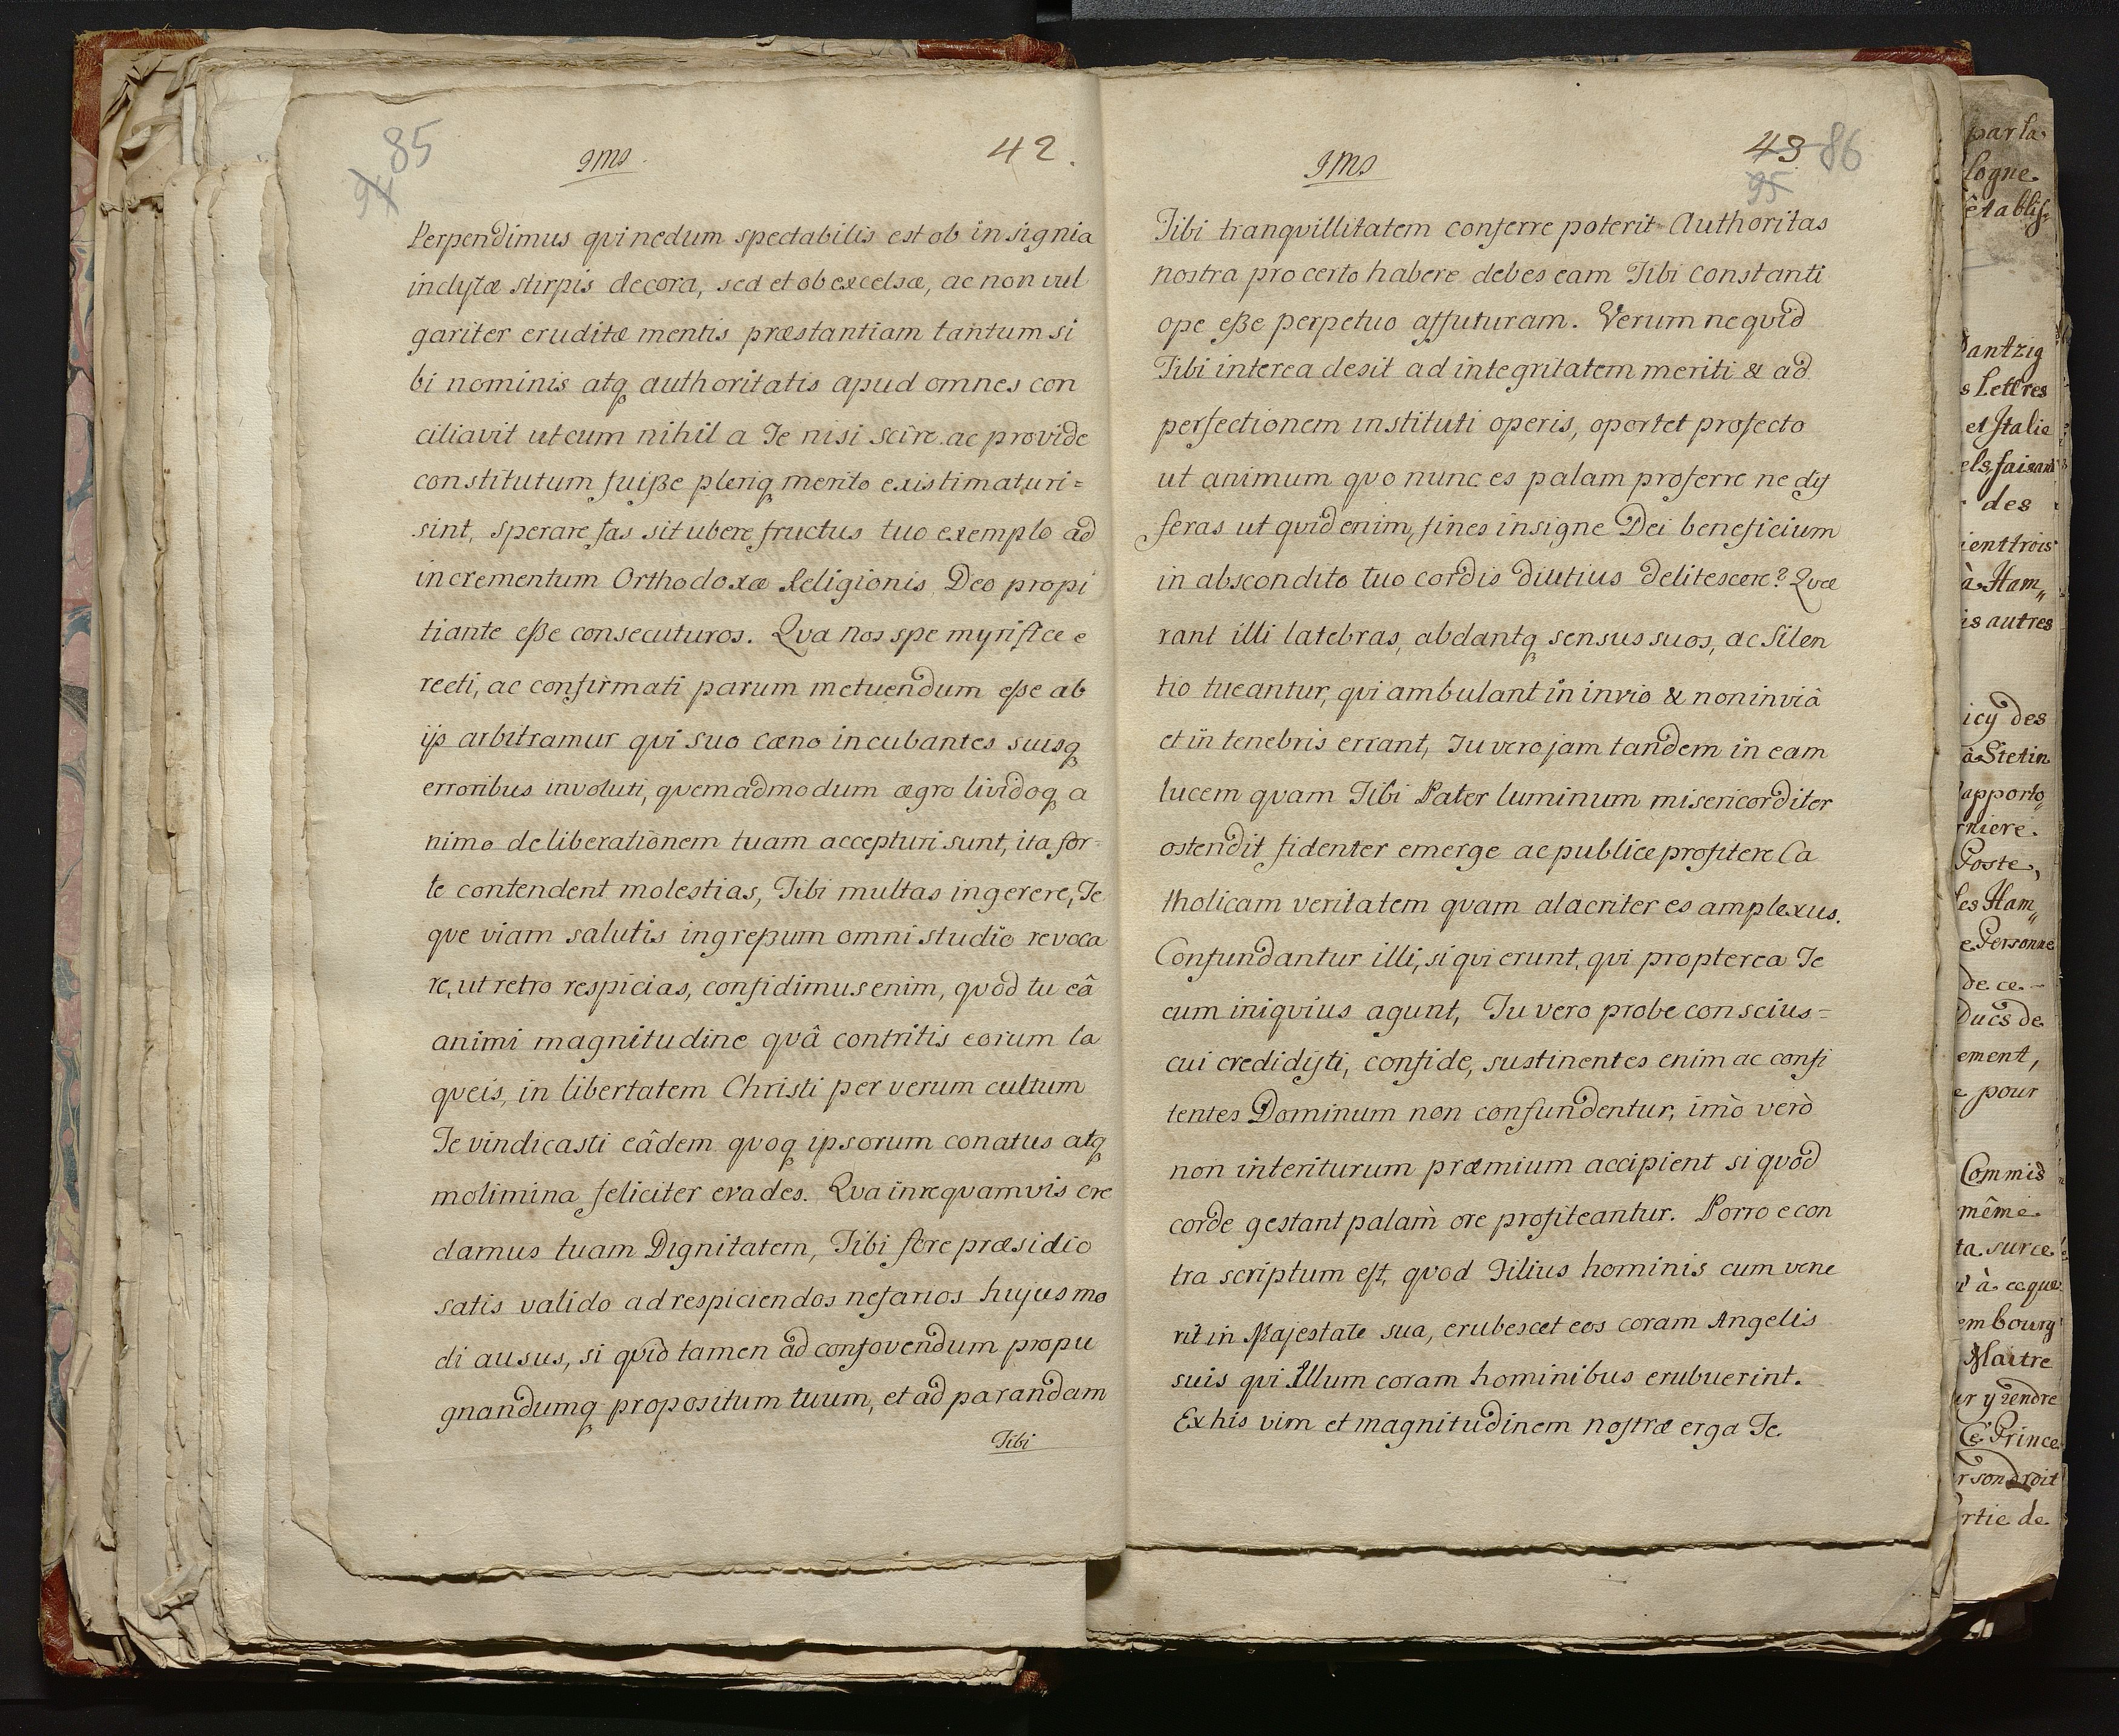 85
94
JMJ.
42.
Perpendimus qvi nedum spectabilis est ob insignia
inclytæ stirpis decora, sed et ob excelsæ, ac non vul
gariter eruditæ mentis præstantiam tantum si
bi nominis atq authoritatis apud omnes con
ciliavit ut cum nihil a Te nisi scire ac provide
constitutum fuiße pleriq merito existimaturi=
sint, sperare fas sit ubere fructus tuo exemplo ad
incrementum Orthodoxæ Religionis Deo propi
tiante eße consecuturos. Qva nos spe myrifice e
recti, ac confirmati parum metuendum eße ab
ijs arbitramur qvi suo cæno incubantes suisq
erroribus involuti, qvemadmodum ægro lividoq a
nimo deliberationem tuam accepturi sunt, ita for-
te contendent molestias, Tibi multas ingerere, Te
qve viam salutis ingreßum omni studio revoca
re, ut retro respicias, confidimus enim, qvòd tu eâ
animi magnitudine qvâ contritis eorum la
qveis, in libertatem Christi per verum cultum
Te vindicasti eâdem qvoq ipsorum conatus atq
molimina feliciter evades. Qva in re qvamvis cre
damus tuam Dignitatem, Tibi fore præsidio
satis valido ad respiciendos nefarios hujusmo
di ausus, si qvid tamen ad confovendum propu
gnandumq propositum tuum, et ad parandam
Tibi
JMJ
43
86
95
Tibi tranqvillitatem conferre poterit Authoritas
nostra pro certo habere debes eam Tibi constanti
ope eße perpetuo affuturam. Verum ne qvid
Tibi interea desit ad integritatem meriti & ad
perfectionem instituti operis, oportet profecto
ut animum qvo nunc es palam proferre ne dif
feras ut qvid enim, sines insigne Dei beneficium
in abscondito tuo cordis diutius delitescere? Qvæ
rant illi latebras, abdantq sensus suos, ac Silen
tio tueantur, qvi ambulant in invio & non in viâ
et in tenebris errant, Tu vero jam tandem in eam
lucem qvam Tibi Pater luminum misericorditer
ostendit fidenter emerge ac publice profitere Ca
tholicam veritatem qvam alacriter es amplexus.
Confundantur illi, si qvi erunt, qvi propterea Te
cum iniqvius agunt, Tu vero probe conscius=
cui credidisti, confide, sustinentes enim ac confi
tentes Dominum non confundentur, imò verò
non interiturum præmium accipient si qvòd
corde gestant palam ore profiteantur. Porro e con
tra scriptum est, qvod Filius hominis cum vene
rit in Majestate sua, erubescet eos coram Angelis
suis qvi Illum coram hominibus erubuerint.
Ex his vim et magnitudinem nostræ erga Te.
par la
logne
établis
Dantzig
s Lettres
et Italie
els, faisant
des
ient trois
à Ham,,
is autres
icy des
à Stetin
apporto
rniere.
Poste,
les Ham,,
e Personne
de ce
Ducs de
ement,
e pour
Commis
même
ta sur ce
à ce que
embourg
Maitre
er y rendre
Ce Prince
r son droit
rtie de